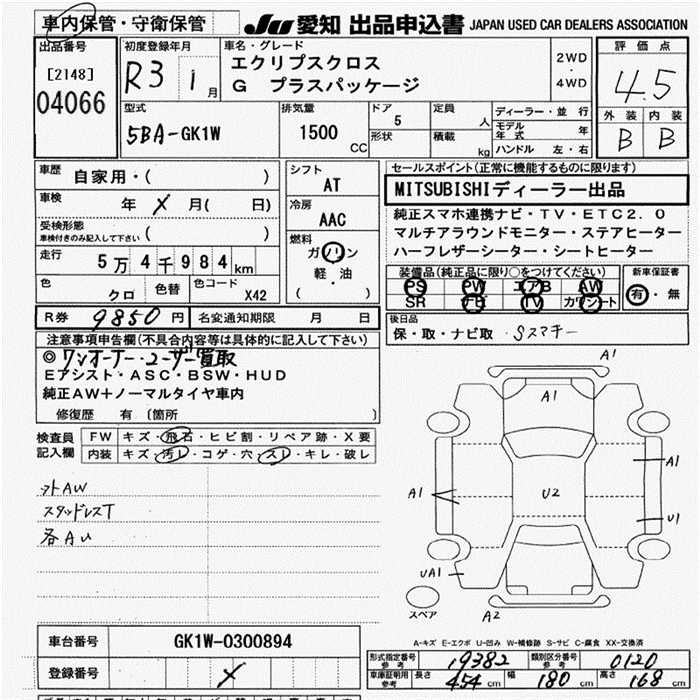 車内保管・守衛保管
JU 愛知 出品申込書 JAPAN USED CAR DEALERS ASSOCIATION
出品番号 初度登録年月 車名・グレード 評価点
[2148] 04066
R3 1月
エクリプスクロス
G プラスパッケージ
2WD・4WD
4.5
外装 内装
B B
型式 排気量 ドア 定員 ディーラー・並行
5BA-GK1W 1500CC 5 人 モデル年式 年
形状 積載 kg ハンドル 左・右
車歴 自家用・( )
シフト AT
セールスポイント(正常に機能するものに限ります)
MITSUBISHIディーラー出品
車検 年 X 月( 日)
冷房 AAC
受検形態 車検付きのみ記入して下さい ( )
純正スマホ連携ナビ・TV・ETC2.0
マルチアラウンドモニター・ステアヒーター
ハーフレザーシーター・シートヒーター
走行 5万4千984km
燃料 ガソリン 軽・油 ( )
装備品(純正品に限り○をつけてください) 新車保証書
PS PW エアB AW
SR ナビ TV カワシート
有・無
色 クロ 色替 色コード X42
R券 9850円 名変通知期限 月 日
後日品
保・取・ナビ取・Sスマキー
注意事項申告欄(不具合内容等は具体的に記入して下さい)
◎ワンオーナー・ユーザー買取
Eアシスト・ASC・BSW・HUD
純正AW+ノーマルタイヤ車内
修復歴 有 〔箇所 〕
検査員記入欄 FW キズ・飛石・ヒビ割・リペア跡・X要
内装 キズ・汚レ・コゲ・穴・スレ・キレ・破レ
外AW
スタッドレスT
各AU
A1
A1
A1
A1
U2
U1
UA1
A2
スペア
A-キズ E-エクボ U-凹み W-補修跡 S-サビ C-腐食 XX-交換済
車台番号 GK1W-0300894
登録番号 X
形式指定番号 参考 19382 類別区分番号 参考 0120
車庫証明用 参考 長さ 454cm 幅 180cm 高さ 168cm